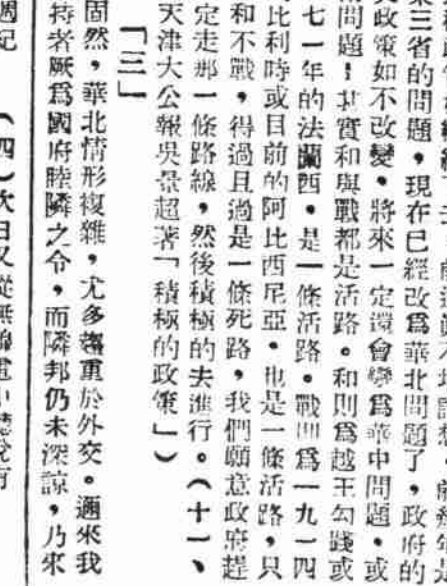 東三省的問題，現在已經改爲華北問題了，政府的
政策如不改變，將來一定還會變爲華中問題，或
問題！其實和與戰都是活路。和則爲越王勾踐或
七一年的法蘭西，是一條活路。戰則爲一九一四
比利時或目前的阿比西尼亞，也是一條活路，只
和不戰，得過且過是一條死路，我們願意政府趕
定走那一條路線，然後積極的去進行。（十一、
天津大公報吳景超著「積極的政策」）
「三」
固然，華北情形複雜，尤多趨重於外交。邇來我
持者厥爲國府睦隣之令，而隣邦仍未深諒，乃來
週記（四）次日又從無線電中聽說有